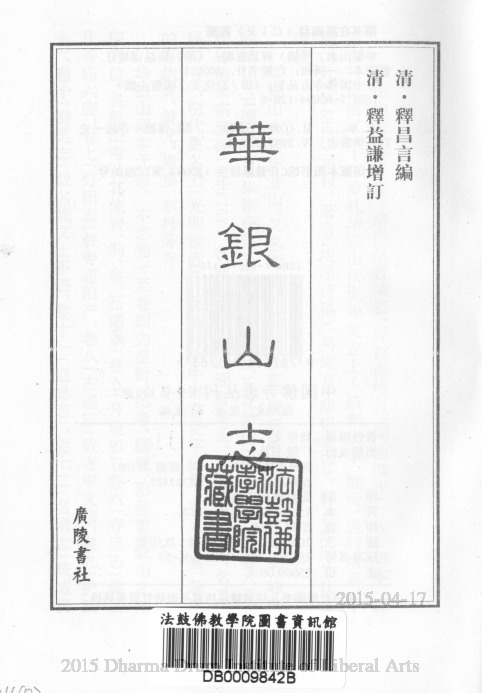 清·釋昌言編
清·釋益謙增訂
華銀山志
法鼓佛教學院藏書
廣陵書社
2015-04-17
法鼓佛教學院圖書資訊館
DB0009842B
2015 Dharma Drum Institute of Liberal Arts